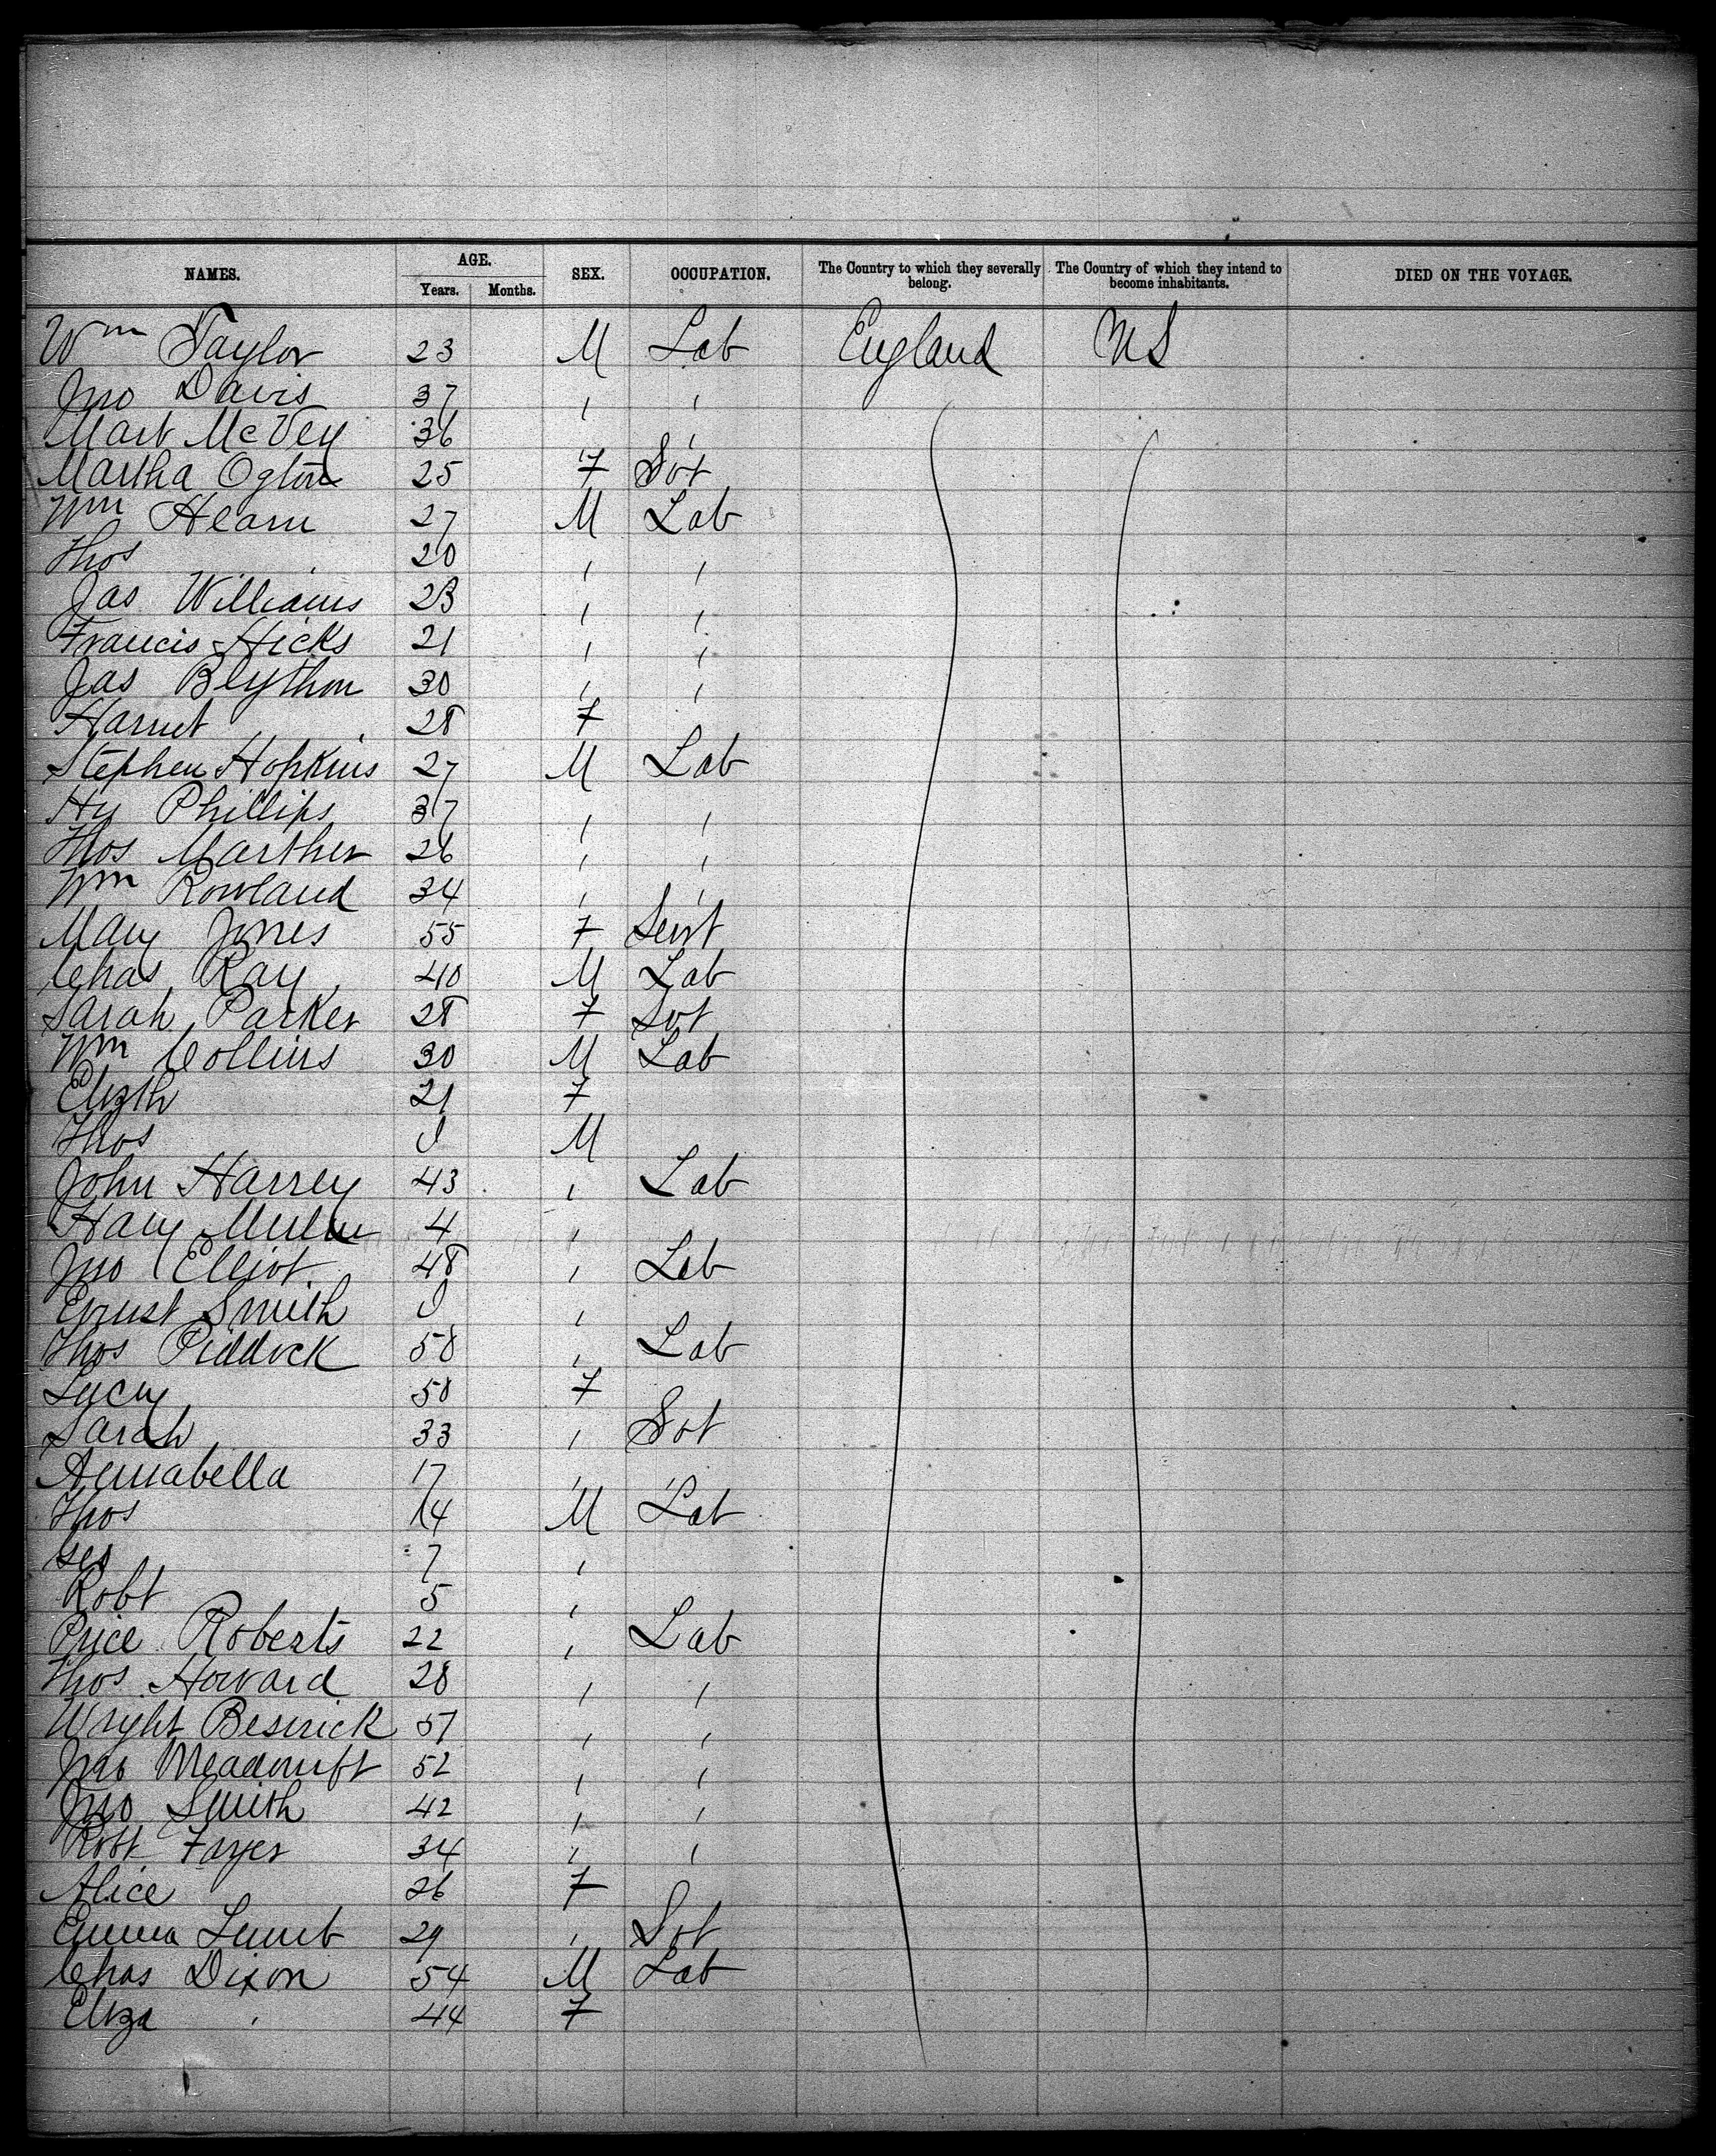 NAMES. AGE. SEX. OCCUPATION. The Country to which they severally belong. The Country of which they intend to become inhabitants. DIED ON THE VOYAGE.
Years. Months.
Wm Taylor 23 M Lab England US
Jno Davis 37 " "
Mart McVey 36 "
Martha Ogton 25 F Svt
Wm Hearn 27 M Lab
Thos " 20 " "
Jas Williams 23 " "
Francis Hicks 21 " "
Jas Blython 30 " "
Harriet " 28 F
Stephen Hopkins 27 M Lab
Hy Phillips 37 " "
Thos Marther 26 " "
Wm Rowland 34 " "
Mary Jones 55 F Servt
Chas Ray 40 M Lab
Sarah Parker 28 F Svt
Wm Collins 30 M Lab
Elizth 21 F
Thos M
John Harrey 43 " Lab
Hary 4 "
Jno Elliot 48 " Lab
Ernst Smith "
Thos Piddock 58 " Lab
Lucy 58 F
Sarah 33 " Svt
Annabella 17 " "
Thos 14 M Lab
Geo 7 "
Robt 5 "
Price Roberts 22 " Lab
Thos Howard 28 " "
Wright Beswick 57 " "
Jno Meadcruft 52 " "
Jno Smith 42 " "
Robt Fayer 34 " "
Alice 26 F
Emma Lumb 29 " Svt
Chas Dixon 54 M Lab
Eliza " 44 F